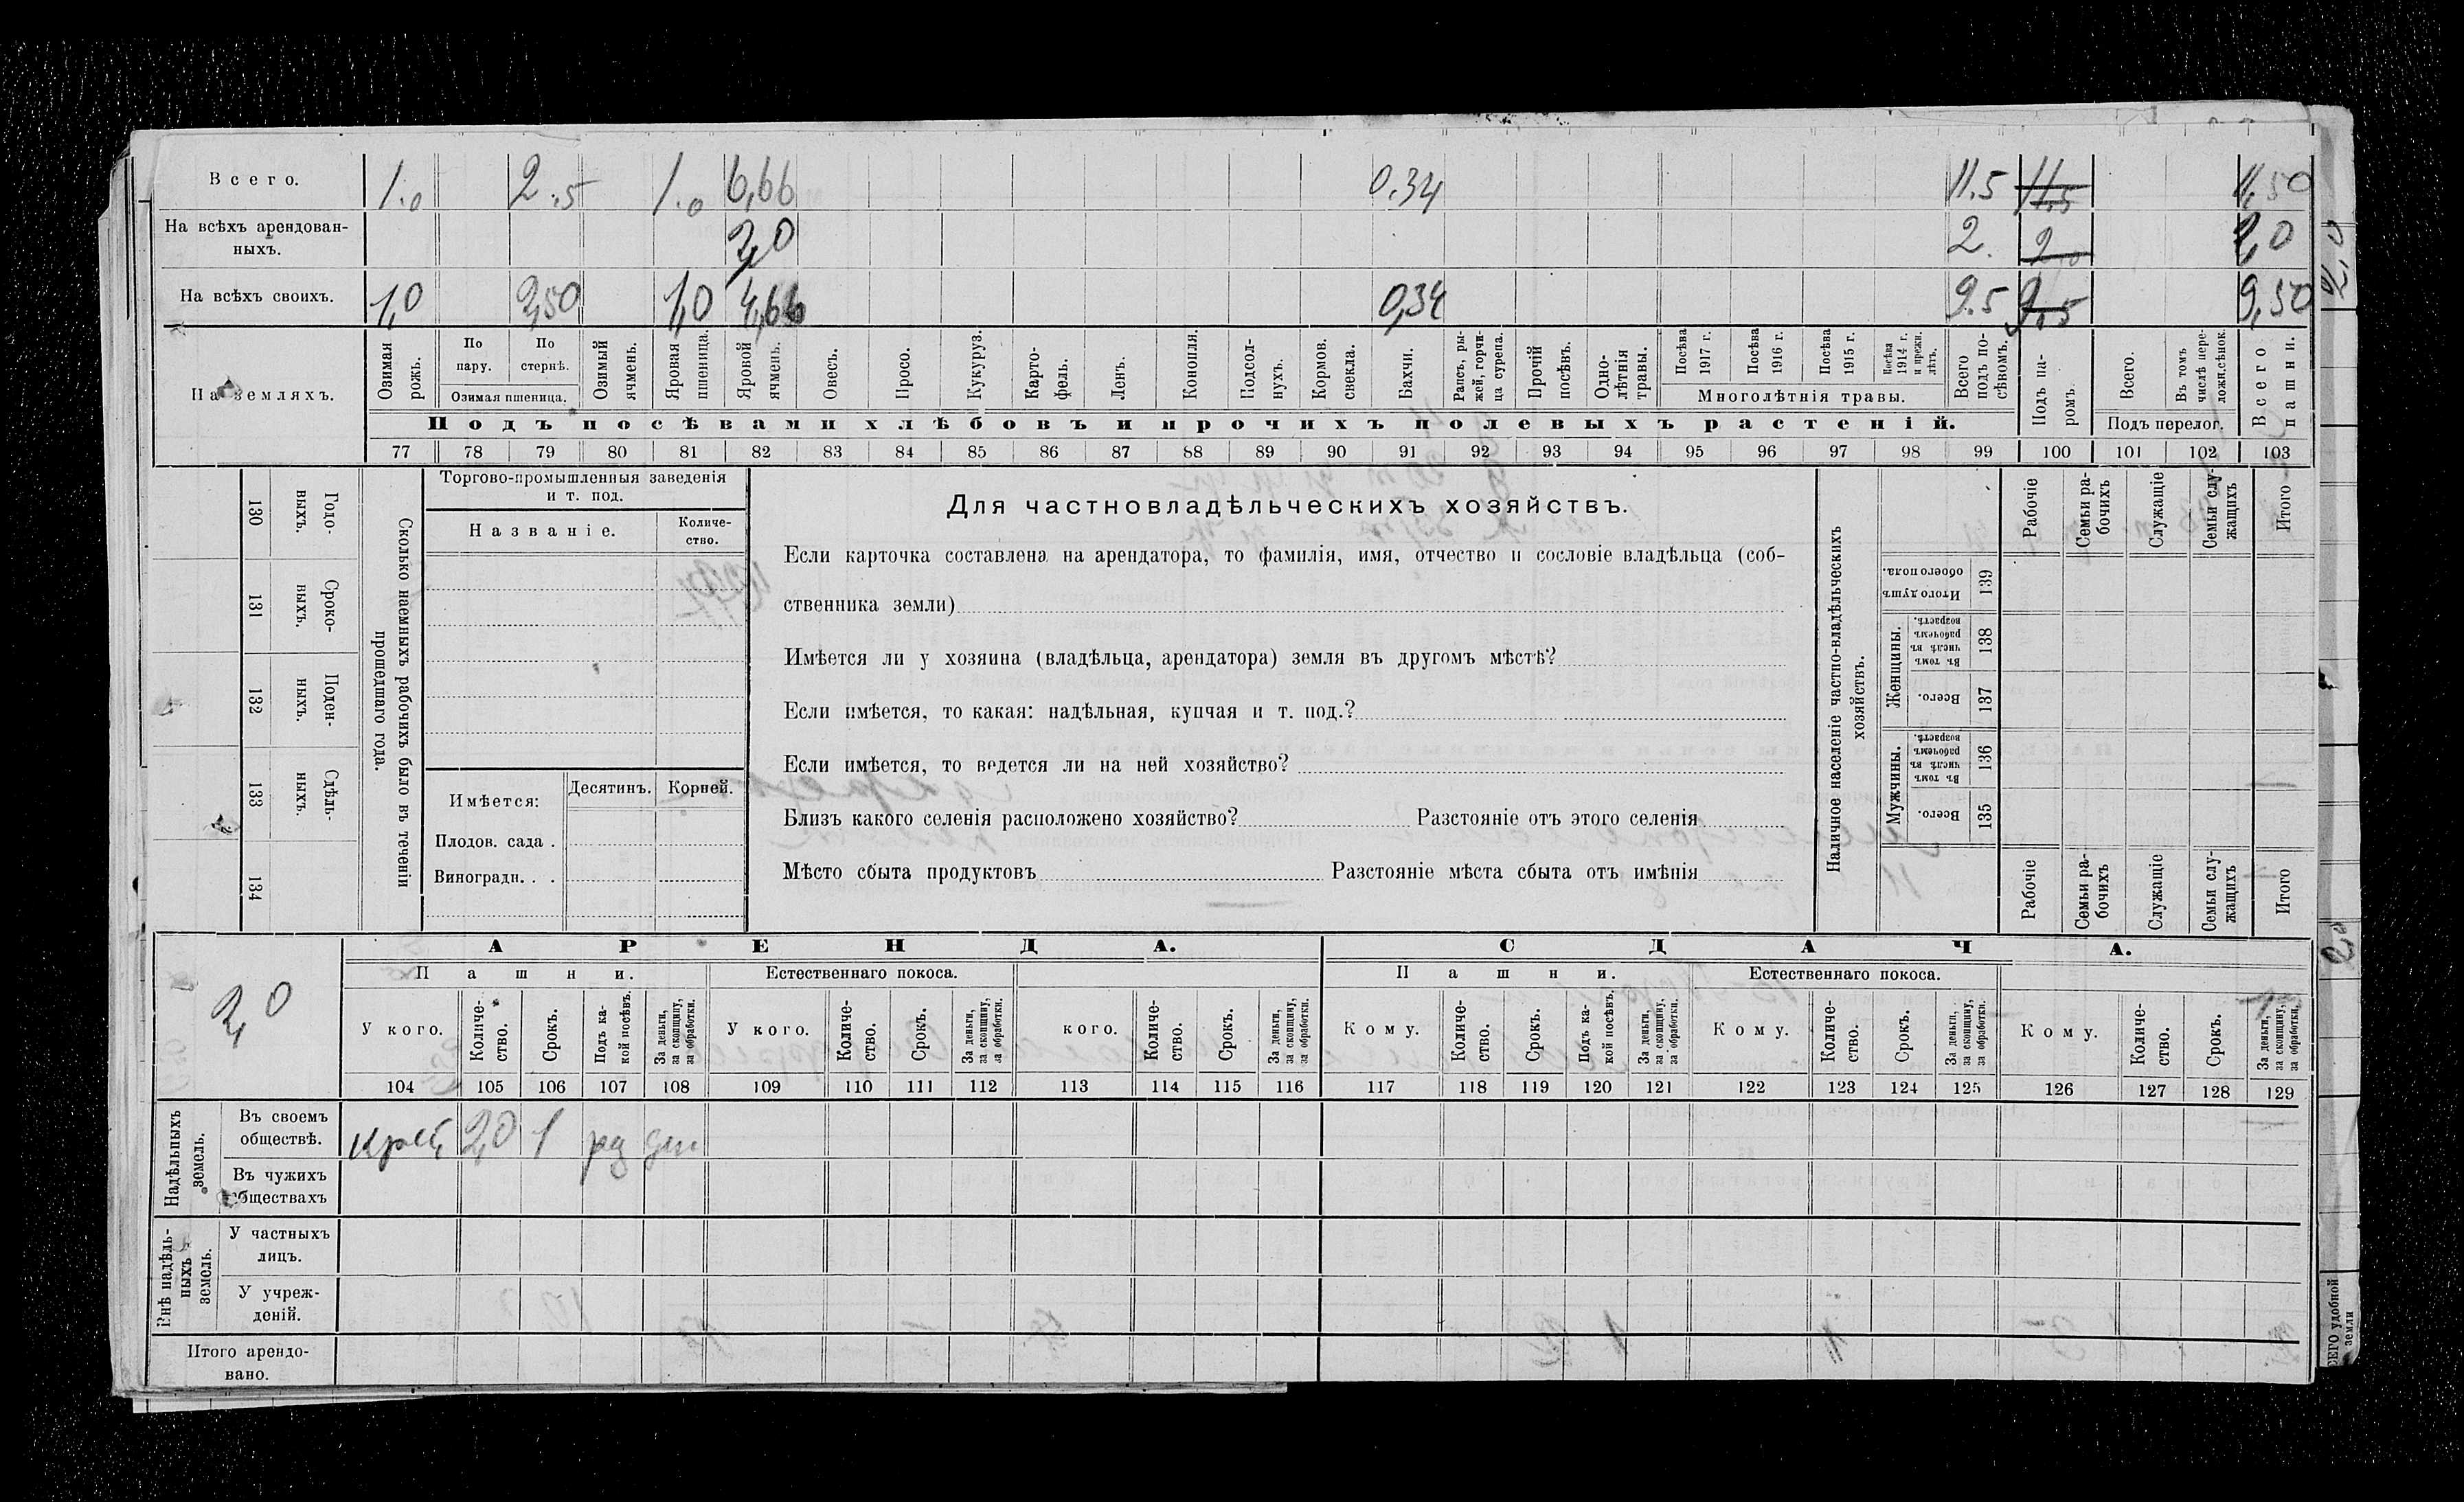 Всего. 1.0 2.5 1.0 6,66 0.34 11.5 11.5 11,50
На всѣхъ арендован-
ныхъ. 2,0 2. 2,0 2,0
На всѣхъ своихъ. 1,0 2,50 1,0 4,66 0,34 9.5 9.5 9,50
На земляхъ.
Озимая рожь.
По пару.
По стернѣ.
Озимая пшеница.
Озимый ячмень.
Яровая пшеница.
Яровой ячмень.
Овесъ.
Просо.
Кукуруз.
Карто-
фель.
Ленъ.
Конопля.
Подсол-
нухъ.
Кормов. свекла.
Бахчи.
Рапсъ, ры-
жей, горчи-
ца сурепа.
Прочій посѣвъ.
Одно-
лѣтнія травы.
Посѣва 1917 г.
Посѣва 1916 г.
Посѣва 1915 г.
Посѣва 1914 г. и прежн. лѣтъ.
Многолѣтнія травы.
Всего подъ по-
сѣвомъ.
Подъ па-
ромъ.
Всего.
Въ томъ числѣ пере-
ложн. сѣнок.
Подъ перелог.
Всего пашни.
Подъ посѣвами хлѣбовъ и прочихъ полевыхъ растеній.
77 78 79 80 81 82 83 84 85 86 87 88 89 90 91 92 93 94 95 96 97 98 99 100 101 102 103
Сколько наемныхъ рабочихъ было въ теченіи
прошедшаго года.
Годо-
выхъ.
130
Сроко-
ныхъ.
131
Поден-
ныхъ.
132
Сдѣль-
ныхъ.
133
134
Торгово-промышленныя заведенія
и т. под.
Названіе.
Количе-
ство.
Имѣется:
Десятин. Корней.
Плодов. сада .
Виноградн. . .
Для частновладѣльческихъ хозяйствъ.
Если карточка составлена на арендатора, то фамилія, имя, отчество и сословіе владѣльца (соб-
ственника земли)
Имѣется ли у хозяина (владѣльца, арендатора) земля въ другомъ мѣстѣ?
Если имѣется, то какая: надѣльная, купчая и т. под.?
Если имѣется, то ведется ли на ней хозяйство?
Близъ какого селенія расположено хозяйство? Разстояніе отъ этого селенія
Мѣсто сбыта продуктовъ Разстояніе мѣста сбыта отъ имѣнія
Наличное населеніе частно-владѣльческихъ
хозяйствъ.
Рабочіе
Семьи ра-
бочихъ
Служащіе
Семьи слу-
жащихъ
Итого
Итого душъ обоего пола. 139
Женщины.
Въ томъ числѣ въ рабочемъ возрастѣ. 138
Всего. 137
Мужчины.
Въ томъ числѣ въ рабочемъ возрастѣ. 136
Всего. 135
Рабочіе
Семьи ра-
бочихъ
Служащіе
Семьи слу-
жащихъ
Итого
2,0
АРЕНДА. СДАЧА.
Пашни. Естественнаго покоса. Пашни. Естественнаго покоса.
У кого.
Количе-
ство.
Срокъ.
Подъ ка-
кой посѣвъ.
За деньги, за скопщину, за обработки.
У кого.
Количе-
ство.
Срокъ.
За деньги, за скопщину, за обработки.
кого.
Количе-
ство.
Срокъ.
За деньги, за скопщину, за обработки.
Кому.
Количе-
ство.
Срокъ.
Подъ ка-
кой посѣвъ.
За деньги, за скопщину, за обработки.
Кому.
Количе-
ство.
Срокъ.
За деньги, за скопщину, за обработки.
Кому.
Количе-
ство.
Срокъ.
За деньги, за скопщину, за обработки.
104 105 106 107 108 109 110 111 112 113 114 115 116 117 118 119 120 121 122 123 124 125 126 127 128 129
Надѣльныхъ земель.
Въ своемъ
обществѣ. Крест. 2,0 1
Въ чужихъ
обществахъ
Внѣ надѣль-
ныхъ земель.
У частныхъ
лицъ.
У учреж-
деній.
Итого арендо-
вано.
2,0
ВСЕГО удобной
земли